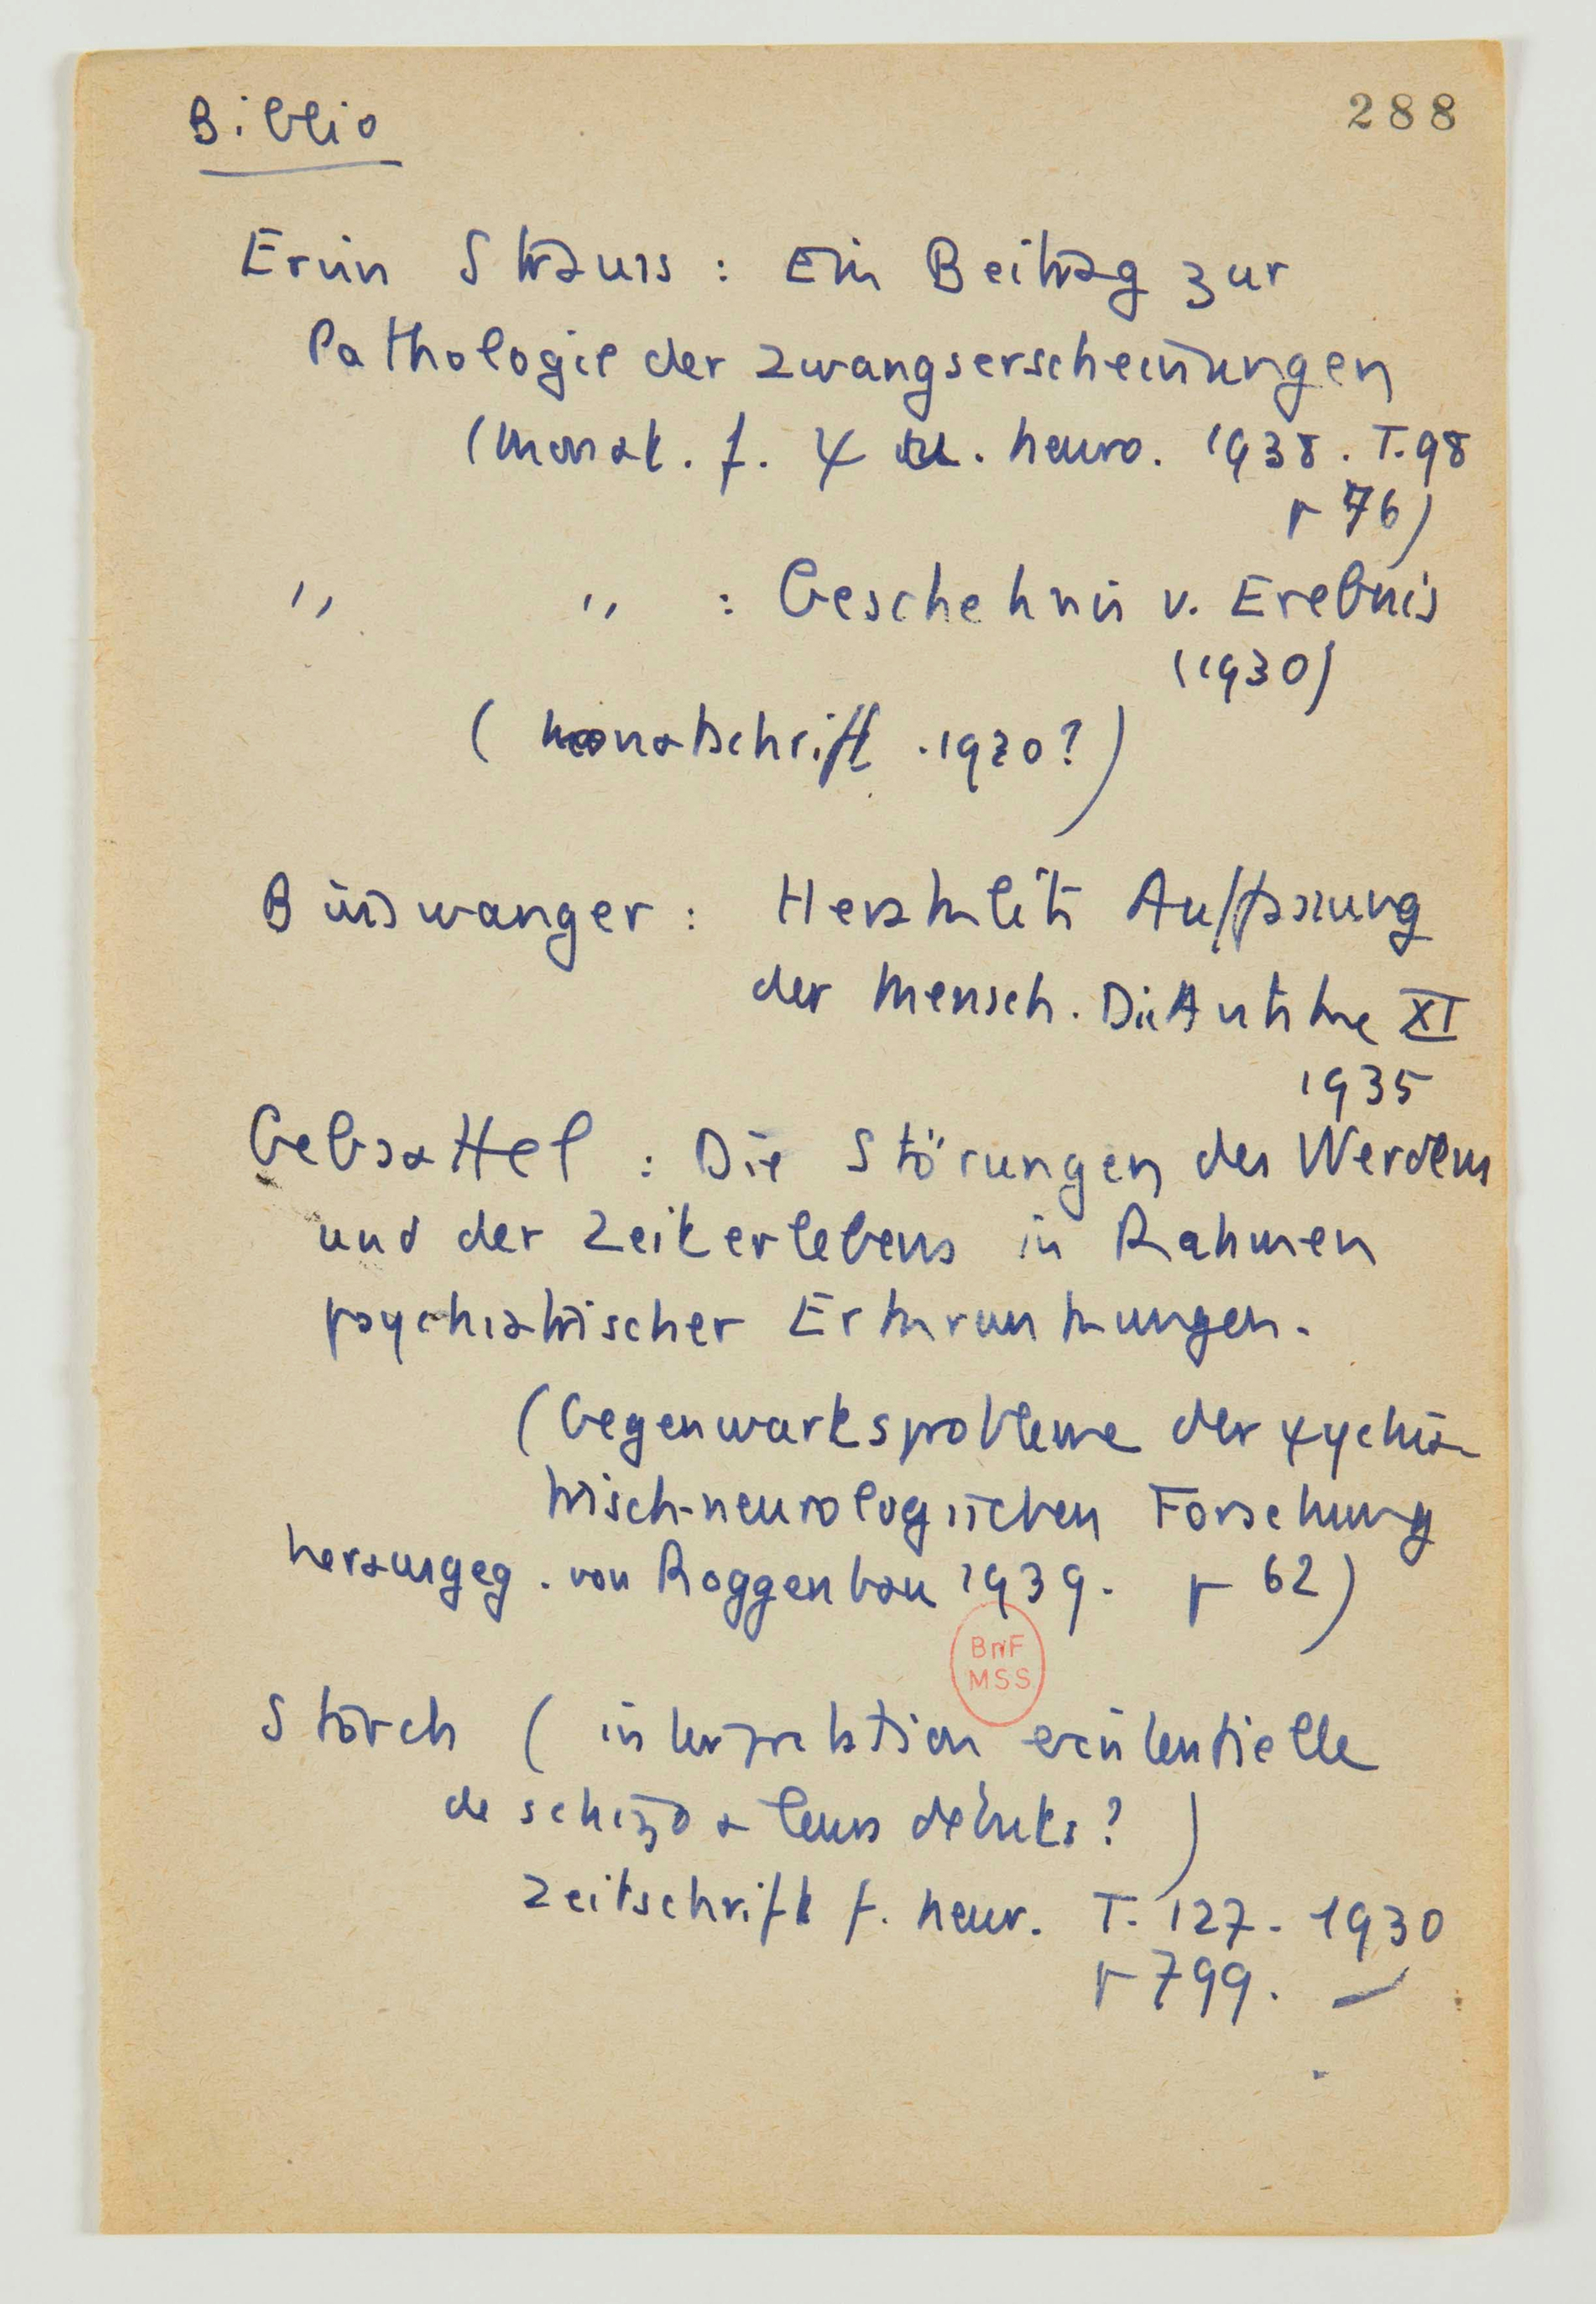 Biblio
288
Erwin Strauss : Ein Beitrag zur
Pathologie der Zwangserscheinungen
(Monat. f. ψ u. Neuro. 1938. T. 98
p 76)
" " : Geschehnis v. Erebnis
(1930)
(Monatschrift . 1920?)
Binswanger : Heraklits Auffassung
der Mensch. Die Antike XI
1935
Gebsattel : Die Störungen des Werdens
und der Zeiterlebens in Rahmen
psychiatrischer Erkrankungen.
(Gegenwartsprobleme der ψychia-
trisch-neurologischen Forschung
herausgeg. von Roggenbau 1939. p 62)
BnF
MSS
Storch (interprétation existentielle
de schizo à leurs débuts? )
Zeitschrift f. Neur. T. 127. 1930
p 799. —